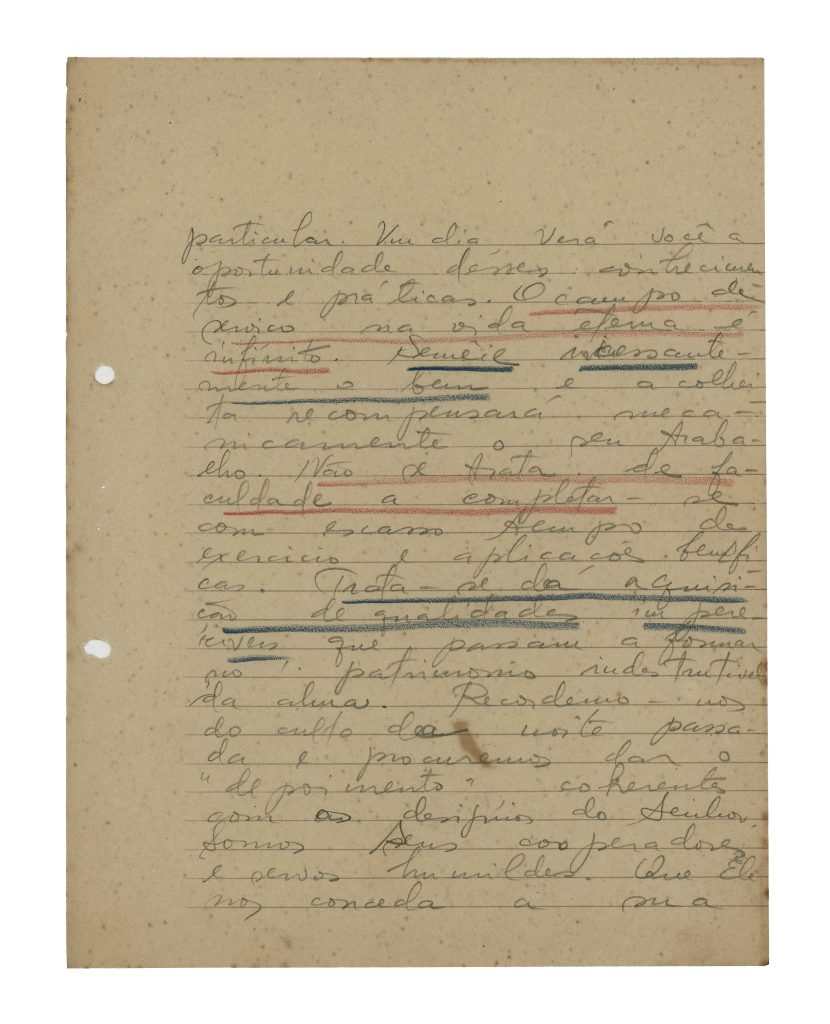 particular. Um dia verá você a
oportunidade désses conhecimen
tos e práticas. O campo de
serviço na vida eterna é
infinito. Semeie incessante-
mente o bem e a colhei
ta recompensará meca-
nicamente o seu traba-
lho. Não se trata de fa-
culdade a completar-se
com escasso tempo de
exercicio e aplicações benéfi
cas. Trata-se da aquisi-
ção de qualidades impere-
civeis que passam a formar
no patrimonio indestrutivel
da alma. Recordemo-nos
do culto da noite passa-
da e procuremos dar o
"depoimento" coherentes
com os designios do Senhor.
Somos Seus cooperadores
e servos humildes. Que Ele
nos conceda a sua